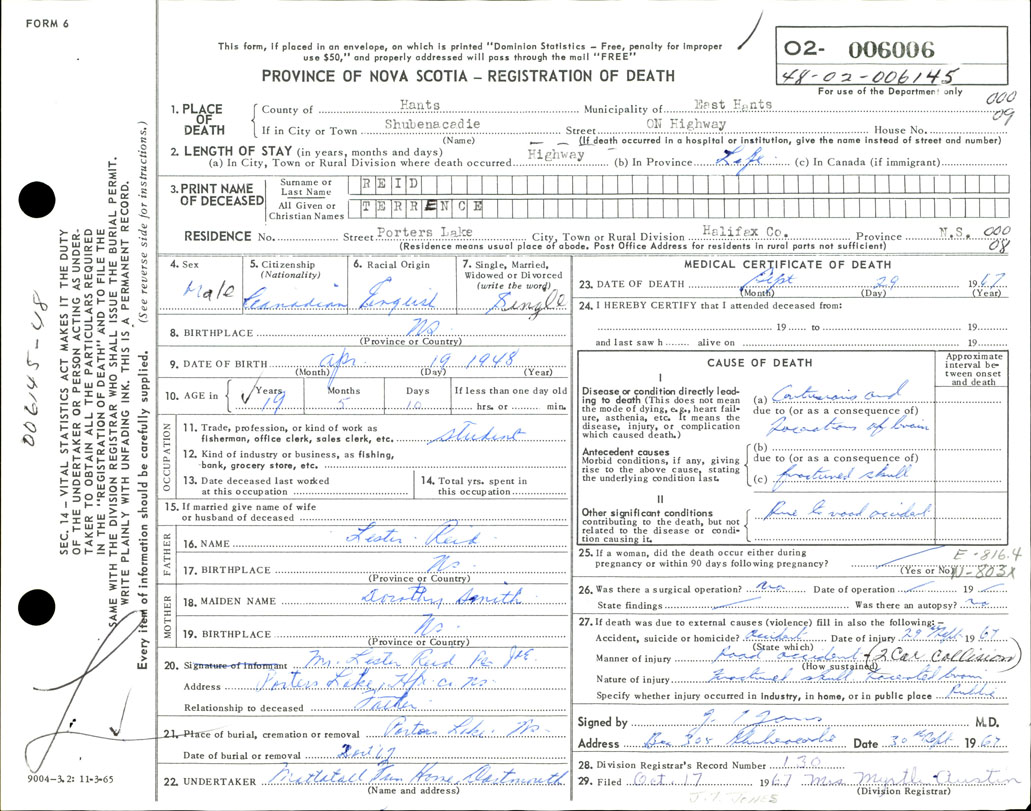 FORM 6
This form, if placed in an envelope, on which is printed "Dominion Statistics – Free, penalty for improper
use $50," and properly addressed will pass through the mail "FREE"
PROVINCE OF NOVA SCOTIA – REGISTRATION OF DEATH
02- 006006
48-02-006145
For use of the Department only
000
09
1. PLACE OF DEATH
County of Hants Municipality of East Hants
If in City or Town Shubenacadie Street ON Highway House No.
(Name) (If death occurred in a hospital or institution, give the name instead of street and number)
2. LENGTH OF STAY (in years, months and days)
(a) In City, Town or Rural Division where death occurred Highway (b) In Province Life (c) In Canada (if immigrant)
3. PRINT NAME OF DECEASED
Surname or Last Name REID
All Given or Christian Names TERRENCE
RESIDENCE No. Street Porters Lake City, Town or Rural Division Halifax Co. Province N.S. 000
08
(Residence means usual place of abode. Post Office Address for residents in rural parts not sufficient)
4. Sex
Male
5. Citizenship
(Nationality)
Canadian
6. Racial Origin
English
7. Single, Married,
Widowed or Divorced
(write the word)
Single
8. BIRTHPLACE NS
(Province or Country)
9. DATE OF BIRTH Apr. 19 1948
(Month) (Day) (Year)
10. AGE in
Years
19
Months
5
Days
10
If less than one day old
hrs. or min.
OCCUPATION
11. Trade, profession, or kind of work as
fisherman, office clerk, sales clerk, etc. student
12. Kind of industry or business, as fishing,
bank, grocery store, etc.
13. Date deceased last worked
at this occupation
14. Total yrs. spent in
this occupation
15. If married give name of wife
or husband of deceased
FATHER
16. NAME Lester Reid
17. BIRTHPLACE NS
(Province or Country)
MOTHER
18. MAIDEN NAME Dorothy Smith
19. BIRTHPLACE NS
(Province or Country)
20. Signature of informant Mr. Lester Reid Per
Address Porters Lake, Hfx Co NS
Relationship to deceased Father
21. Place of burial, cremation or removal Porters Lake NS
Date of burial or removal
22. UNDERTAKER Mattatall Fun Home, Dartmouth
(Name and address)
MEDICAL CERTIFICATE OF DEATH
23. DATE OF DEATH Sept 29 1967
(Month) (Day) (Year)
24. I HEREBY CERTIFY that I attended deceased from:
19 to 19
and last saw h alive on 19
CAUSE OF DEATH
Approximate
interval be-
tween onset
and death
I
Disease or condition directly lead-
ing to death (This does not mean
the mode of dying, e.g., heart fail-
ure, asthenia, etc. It means the
disease, injury, or complication
which caused death.)
(a) Contusions and
due to (or as a consequence of)
lacerations of brain
Antecedent causes
Morbid conditions, if any, giving
rise to the above cause, stating
the underlying condition last.
(b)
due to (or as a consequence of)
(c) fractured skull
II
Other significant conditions
contributing to the death, but not
related to the disease or condi-
tion causing it.
Due to road accident
25. If a woman, did the death occur either during
pregnancy or within 90 days following pregnancy?
(Yes or No)
E-816.4
N-803X
26. Was there a surgical operation? no Date of operation 19
State findings Was there an autopsy? no
27. If death was due to external causes (violence) fill in also the following:–
Accident, suicide or homicide? Accident Date of injury 29 Sept 1967
(State which)
Manner of injury Road accident (2 Car Collision)
(How sustained)
Nature of injury Fractured skull lacerated brain
Specify whether injury occurred in industry, in home, or in public place Public
Signed by M.D.
Address Box 308 Shubenacadie Date 30th Sept 1967
28. Division Registrar's Record Number 130
29. Filed Oct. 17 1967 Mrs Myrtle Austin
(Division Registrar)
J.T. JONES
SEC. 14 – VITAL STATISTICS ACT MAKES IT THE DUTY
OF THE UNDERTAKER OR PERSON ACTING AS UNDER-
TAKER TO OBTAIN ALL THE PARTICULARS REQUIRED
IN THE "REGISTRATION OF DEATH" AND TO FILE THE
SAME WITH THE DIVISION REGISTRAR WHO SHALL ISSUE THE BURIAL PERMIT.
WRITE PLAINLY WITH UNFADING INK. THIS IS A PERMANENT RECORD.
Every item of information should be carefully supplied. (See reverse side for instructions.)
006145-48
9004-3.2: 11-3-65